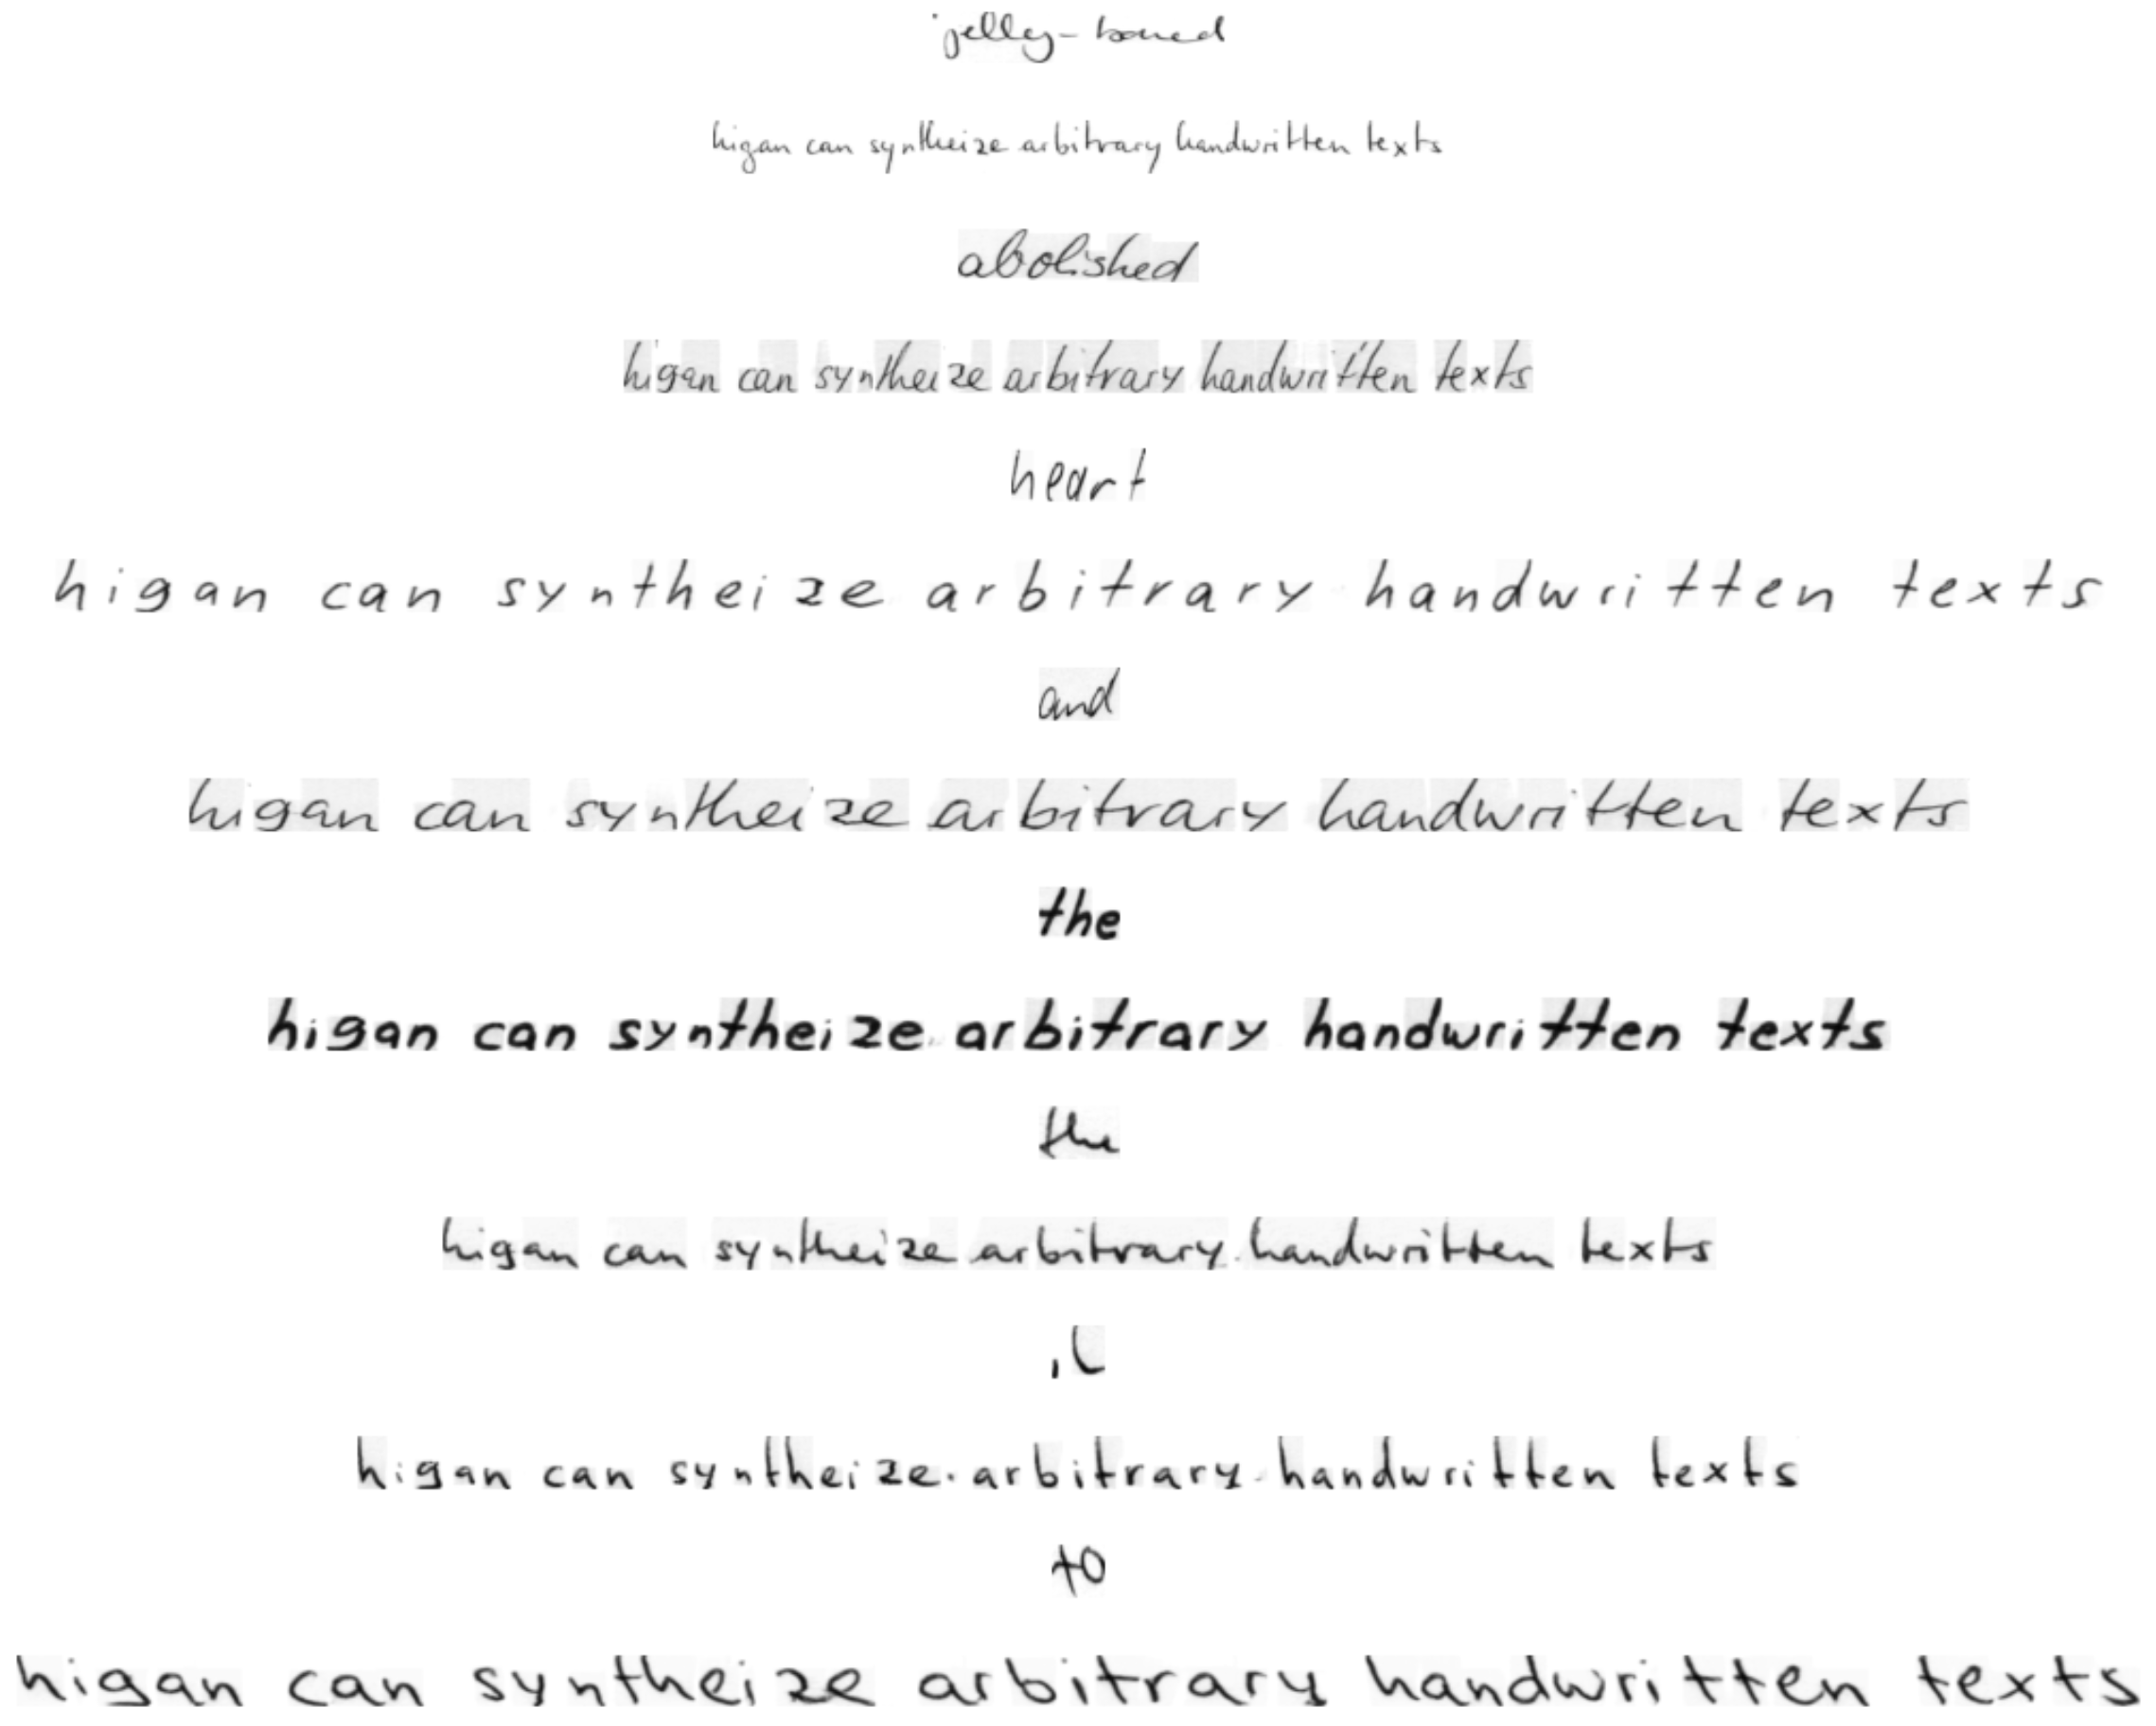 jelly-boned
higan can syntheize arbitrary handwritten texts
abolished
higan can syntheize arbitrary handwritten texts
heart
higan can syntheize arbitrary handwritten texts
and
higan can syntheize arbitrary handwritten texts
the
higan can syntheize arbitrary handwritten texts
the
higan can syntheize arbitrary handwritten texts
higan can syntheize arbitrary handwritten texts
to
higan can syntheize arbitrary handwritten texts